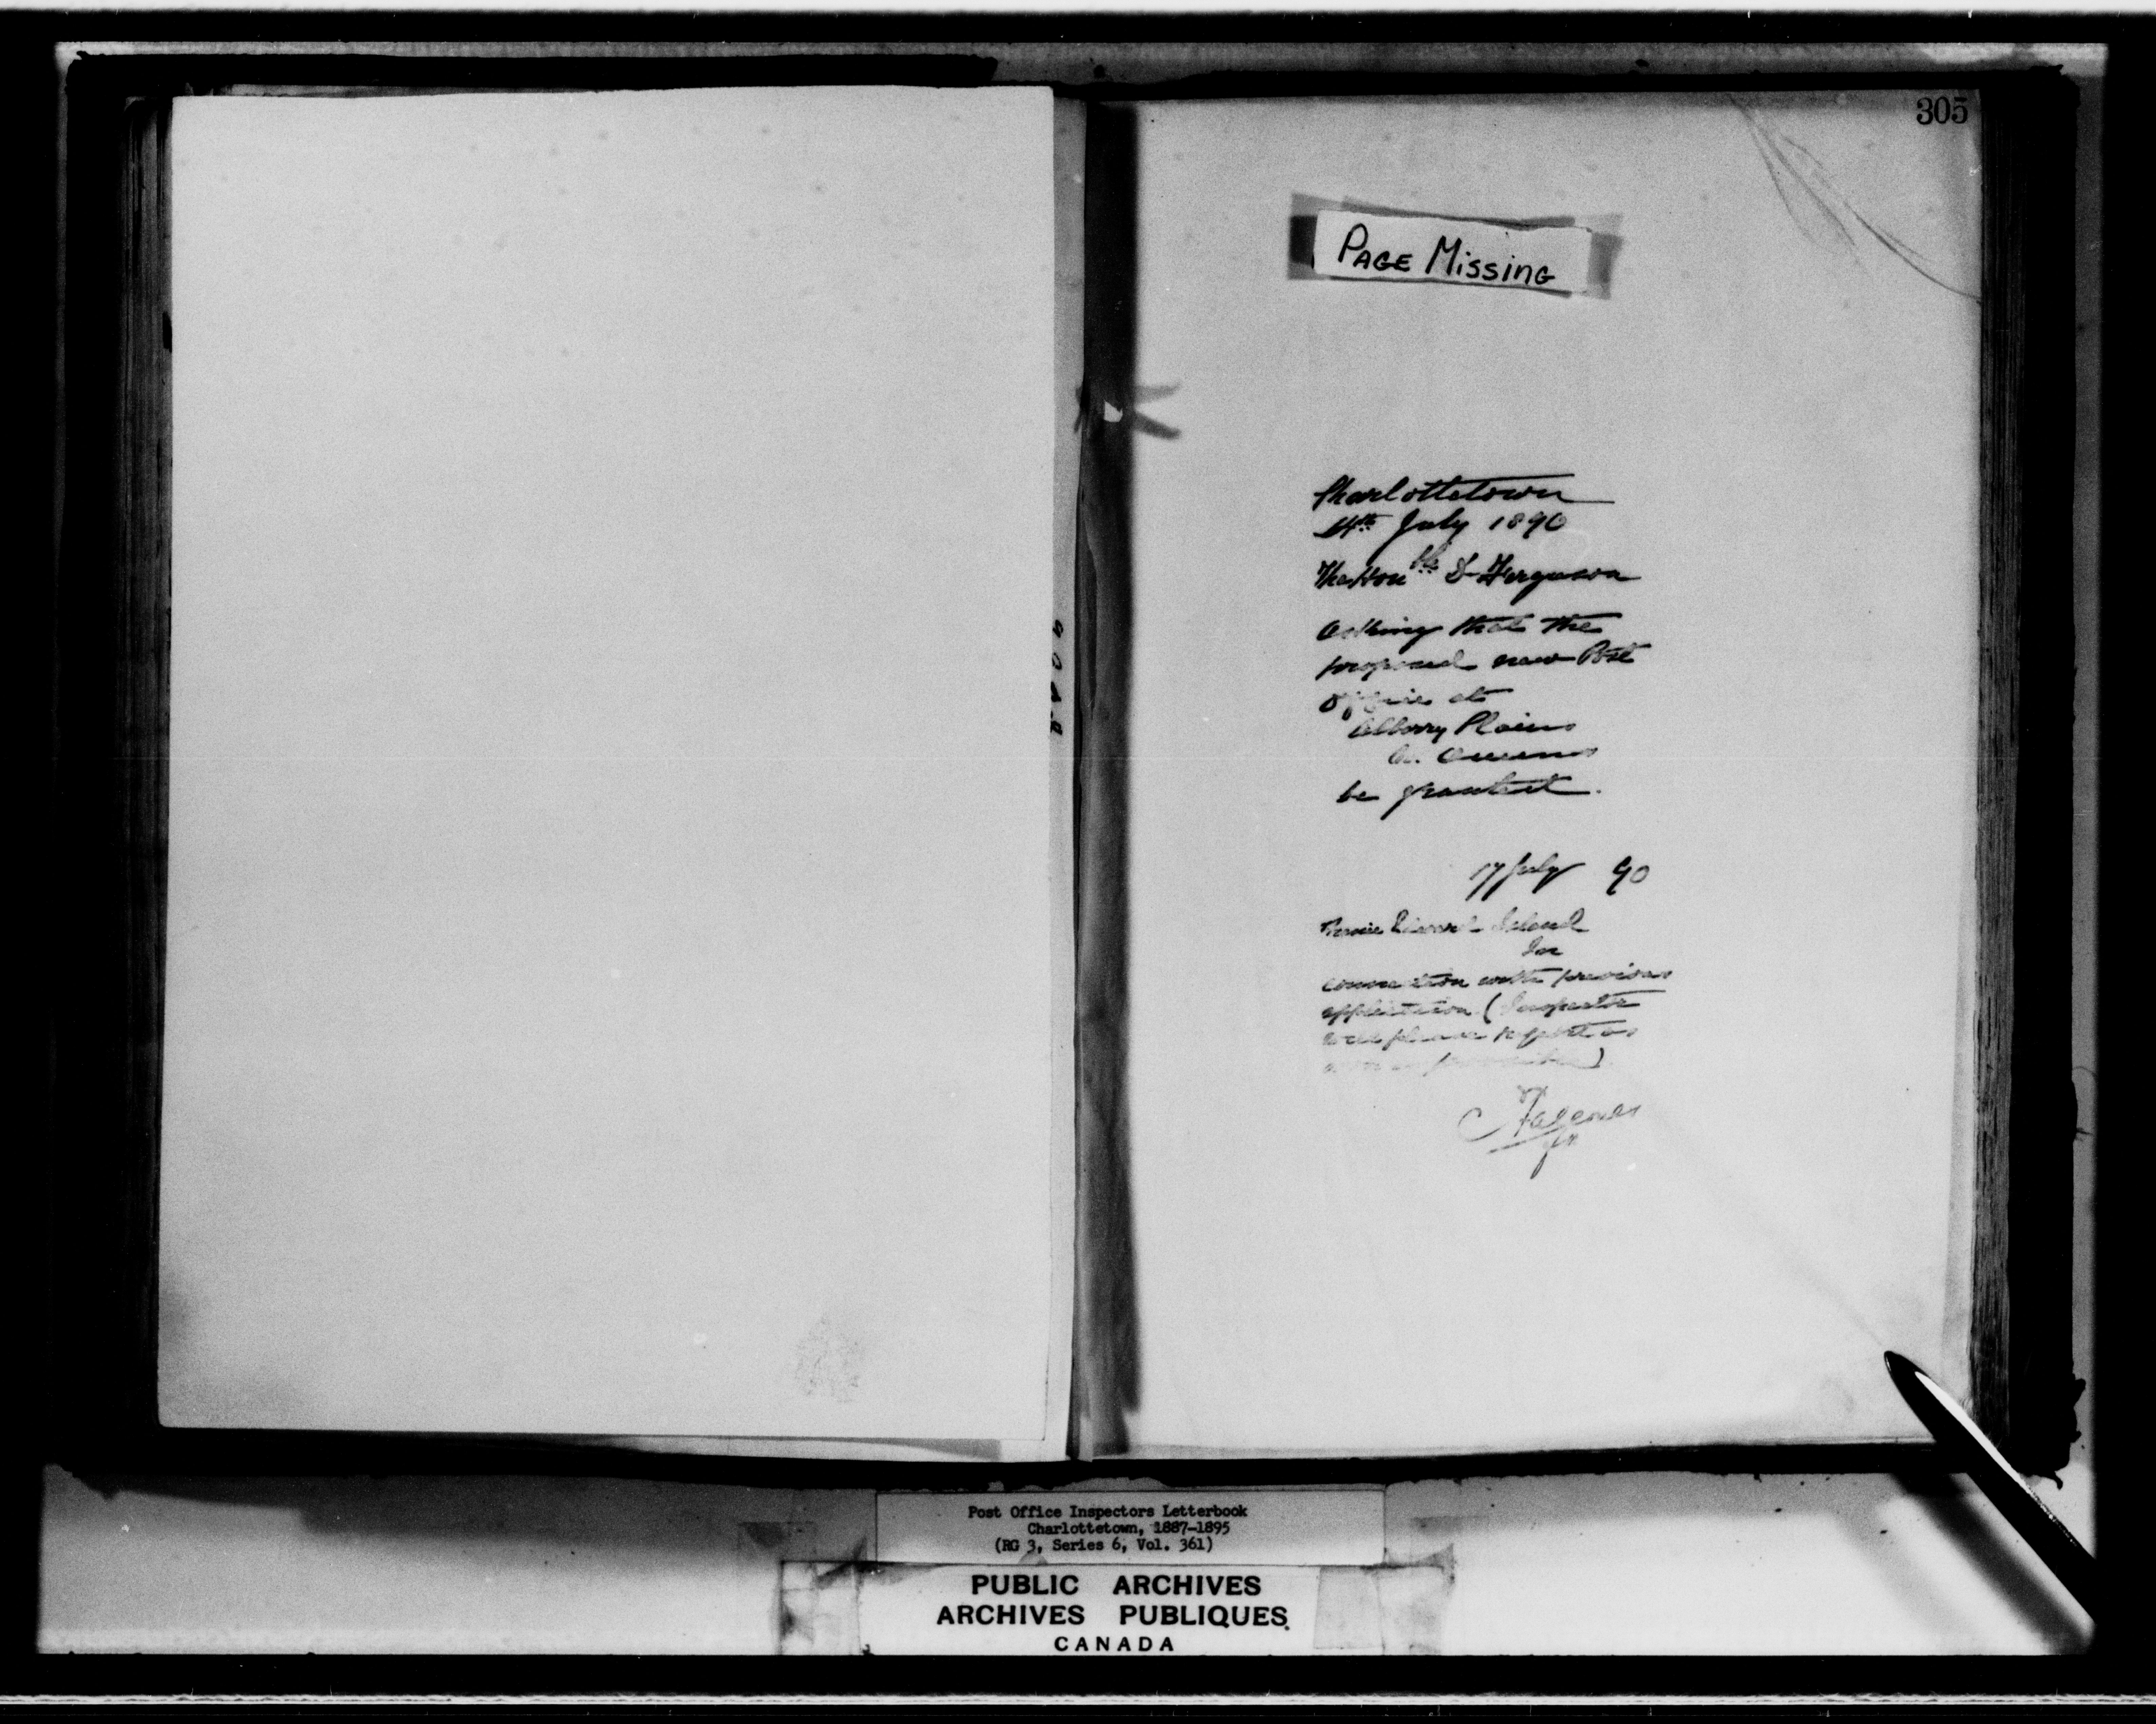 305
PAGE MISSING
Charlottetown
14th July 1890
The Honble D Ferguson
Asking that the
proposed new Post
Office at
Albany Plains
Co. Queens
be granted.
17 July 90
Prince Edward Island
In
connection with previous
application. (Inspector
will please report as
soon as possible)
Post Office Inspectors Letterbook
Charlottetown, 1887-1895
(RG 3, Series 6, Vol. 361)
PUBLIC ARCHIVES
ARCHIVES PUBLIQUES
CANADA